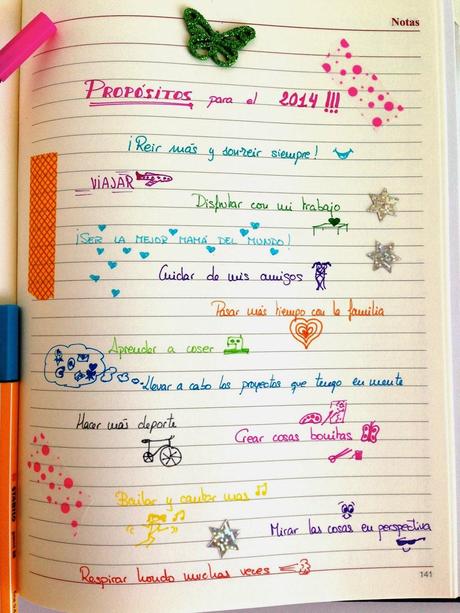 Notas
PROPÓSITOS para el 2014!!!
¡Reir más y sonreir siempre!
VIAJAR
Disfrutar con mi trabajo
¡SER LA MEJOR MAMÁ DEL MUNDO!
Cuidar de mis amigos
Pasar más tiempo con la familia
Aprender a coser
Llevar a cabo los proyectos que tengo en mente
Hacer más deporte
Crear cosas bonitas
Bailar y cantar mas
Mirar las cosas en perspectiva
Respirar hondo muchas veces
141